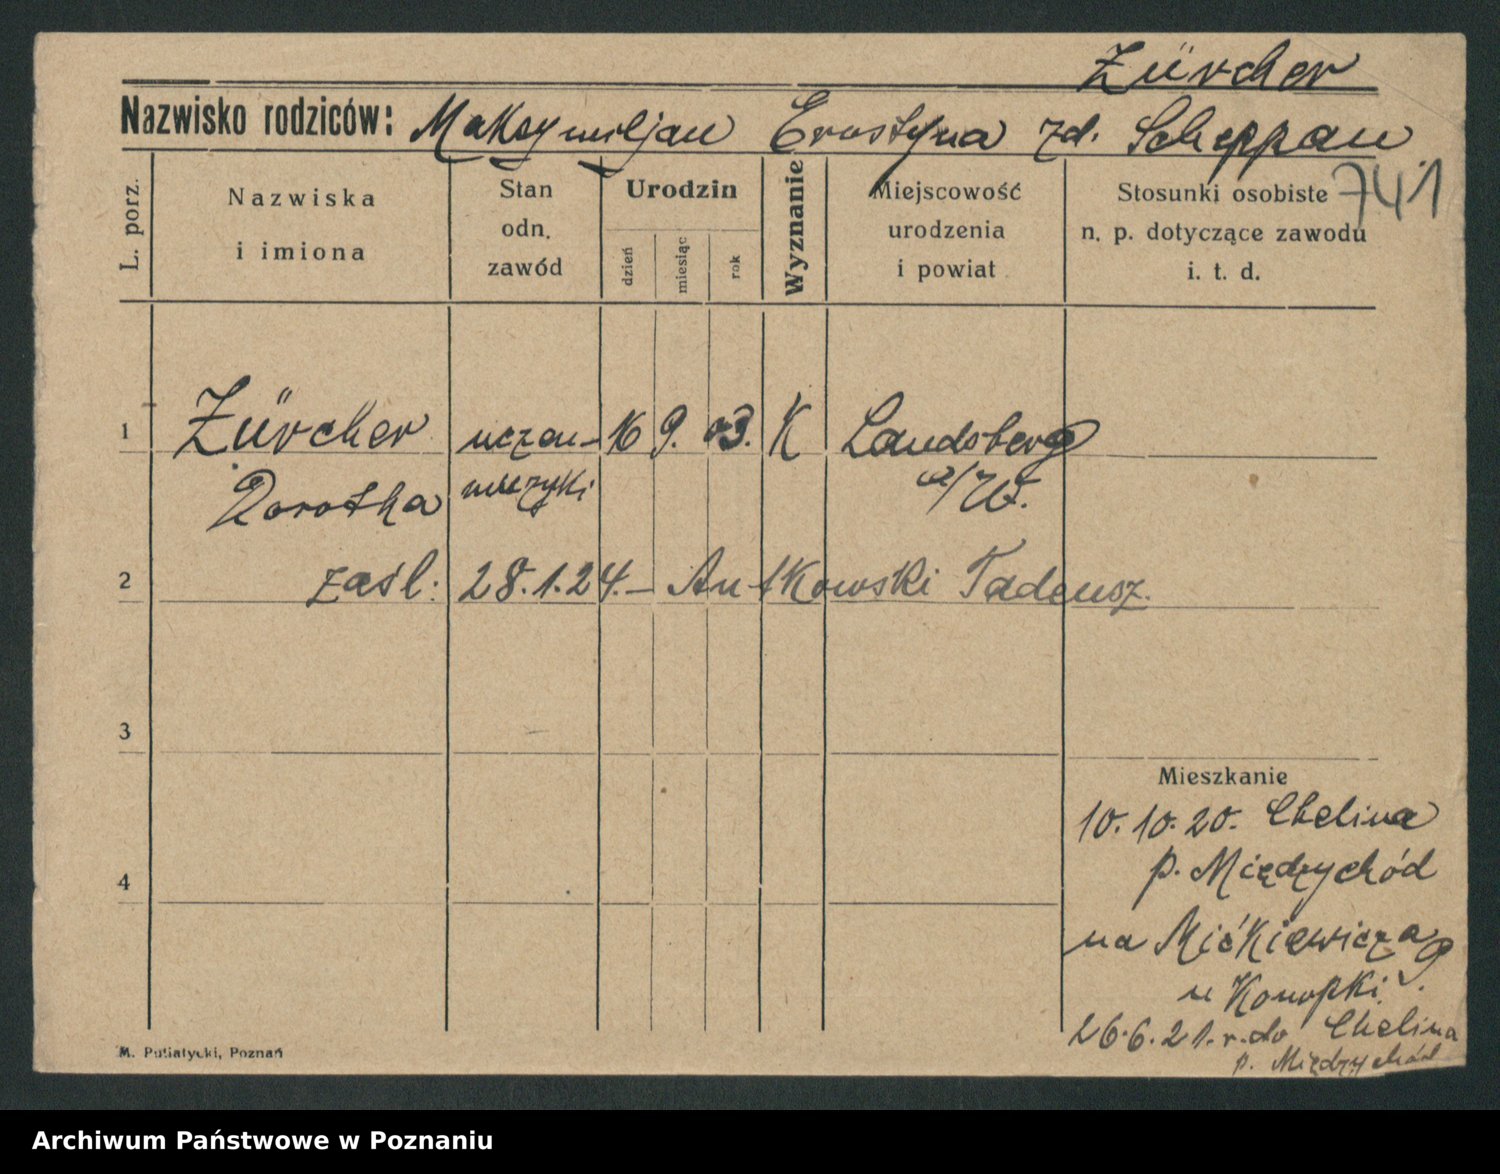 Zürcher
Nazwisko rodziców: Maksymiljan Ernstyna zd. Scheppan
741
L. porz.
Nazwiska i imiona
Stan odn. zawód
Urodzin
dzień miesiąc rok
Wyznanie
Miejscowość urodzenia i powiat
Stosunki osobiste n. p. dotyczące zawodu i. t. d.
1 Zürcher uczen- 16 9. 03. K Landsberg
Dorotha muzyki a/W.
2 zaśl: 28.1.24.- Antkowski Tadeusz.
3
Mieszkanie
10.10.20. Chelina
p. Międzychód
4
na Mićkiewicza 9.
u Konopki
26.6.21.r. do Chelina
p. Międzychód
M. Putiatycki, Poznań
Archiwum Państwowe w Poznaniu